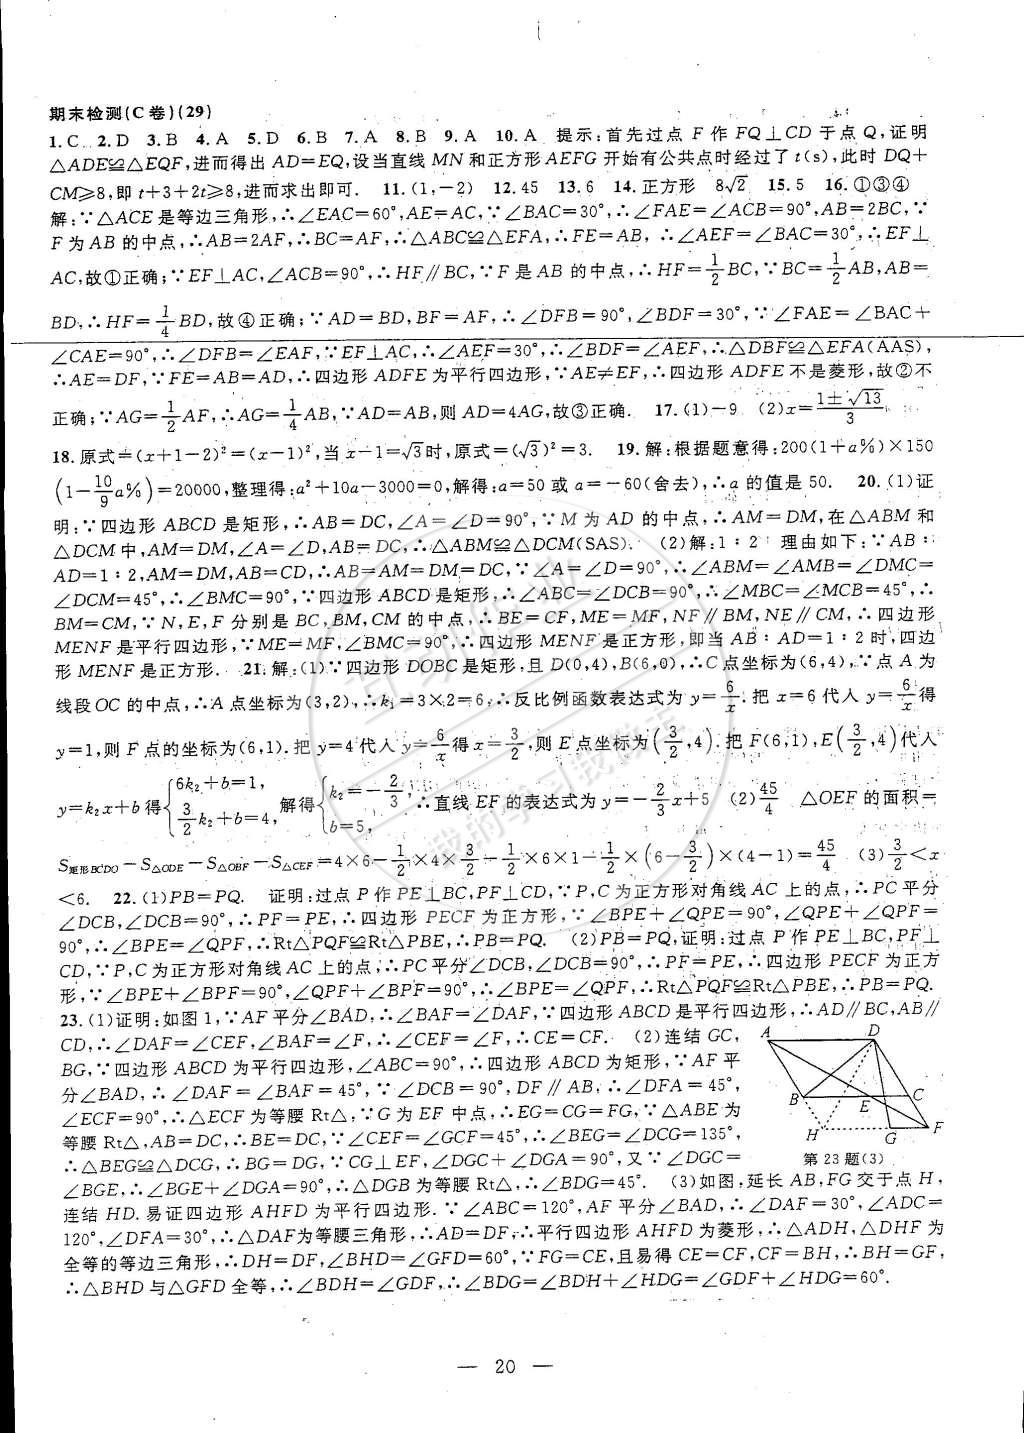 期末检测(C卷)(29)
1.C 2.D 3.B 4.A 5.D 6.B 7.A 8.B 9.A 10.A 提示:首先过点F作FQ⊥CD于点Q,证明
△ADE≌△EQF,进而得出AD=EQ,设当直线MN和正方形AEFG开始有公共点时经过了t(s),此时DQ+
CM≥8,即t+3+2t≥8,进而求出即可. 11.(1,-2) 12.45 13.6 14.正方形 8√2 15.5 16.①③④
解:∵△ACE是等边三角形,∴∠EAC=60°,AE=AC,∵∠BAC=30°,∴∠FAE=∠ACB=90°,AB=2BC,∵
F为AB的中点,∴AB=2AF,∴BC=AF,∴△ABC≌△EFA,∴FE=AB,∴∠AEF=∠BAC=30°,∴EF⊥
AC,故①正确;∵EF⊥AC,∠ACB=90°,∴HF∥BC,∵F是AB的中点,∴HF=1/2BC,∵BC=1/2AB,AB=
BD,∴HF=1/4BD,故④正确;∵AD=BD,BF=AF,∴∠DFB=90°,∠BDF=30°,∵∠FAE=∠BAC+
∠CAE=90°,∴∠DFB=∠EAF,∵EF⊥AC,∴∠AEF=30°,∴∠BDF=∠AEF,∴△DBF≌△EFA(AAS),
∴AE=DF,∵FE=AB=AD,∴四边形ADFE为平行四边形,∵AE≠EF,∴四边形ADFE不是菱形,故②不
正确;∵AG=1/2AF,∴AG=1/4AB,∵AD=AB,则AD=4AG,故③正确. 17.(1)-9 (2)x=(1±√13)/3
18.原式=(x+1-2)²=(x-1)²,当x-1=√3时,原式=(√3)²=3. 19.解:根据题意得:200(1+a%)×150
(1-10/9a%)=20000,整理得:a²+10a-3000=0,解得:a=50或a=-60(舍去),∴a的值是50. 20.(1)证
明:∵四边形ABCD是矩形,∴AB=DC,∠A=∠D=90°,∵M为AD的中点,∴AM=DM,在△ABM和
△DCM中,AM=DM,∠A=∠D,AB=DC,∴△ABM≌△DCM(SAS). (2)解:1∶2 理由如下:∵AB∶
AD=1∶2,AM=DM,AB=CD,∴AB=AM=DM=DC,∵∠A=∠D=90°,∴∠ABM=∠AMB=∠DMC=
∠DCM=45°,∴∠BMC=90°,∵四边形ABCD是矩形,∴∠ABC=∠DCB=90°,∴∠MBC=∠MCB=45°,∴
BM=CM,∵N,E,F分别是BC,BM,CM的中点,∴BE=CF,ME=MF,NF∥BM,NE∥CM,∴四边形
MENF是平行四边形,∵ME=MF,∠BMC=90°,∴四边形MENF是正方形,即当AB∶AD=1∶2时,四边
形MENF是正方形. 21.解:(1)∵四边形DOBC是矩形,且D(0,4),B(6,0),∴C点坐标为(6,4),∵点A为
线段OC的中点,∴A点坐标为(3,2),∴k₁=3×2=6,∴反比例函数表达式为y=6/x.把x=6代人y=6/x得
y=1,则F点的坐标为(6,1).把y=4代人y=6/x得x=3/2,则E点坐标为(3/2,4).把F(6,1),E(3/2,4)代人
y=k₂x+b得{6k₂+b=1, 3/2k₂+b=4,解得{k₂=-2/3, b=5,∴直线EF的表达式为y=-2/3x+5 (2)45/4 △OEF的面积=
S矩形BCDO-S△ODE-S△OBF-S△CEF=4×6-1/2×4×3/2-1/2×6×1-1/2×(6-3/2)×(4-1)=45/4 (3)3/2<x
<6. 22.(1)PB=PQ. 证明:过点P作PE⊥BC,PF⊥CD,∵P,C为正方形对角线AC上的点,∴PC平分
∠DCB,∠DCB=90°,∴PF=PE,∴四边形PECF为正方形,∵∠BPE+∠QPE=90°,∠QPE+∠QPF=
90°,∴∠BPE=∠QPF,∴Rt△PQF≌Rt△PBE,∴PB=PQ. (2)PB=PQ,证明:过点P作PE⊥BC,PF⊥
CD,∵P,C为正方形对角线AC上的点,∴PC平分∠DCB,∠DCB=90°,∴PF=PE,∴四边形PECF为正方
形,∵∠BPE+∠BPF=90°,∠QPF+∠BPF=90°,∴∠BPE=∠QPF,∴Rt△PQF≌Rt△PBE,∴PB=PQ.
23.(1)证明:如图1,∵AF平分∠BAD,∴∠BAF=∠DAF,∵四边形ABCD是平行四边形,∴AD∥BC,AB∥
CD,∴∠DAF=∠CEF,∠BAF=∠F,∴∠CEF=∠F,∴CE=CF. (2)连结GC,
BG,∵四边形ABCD为平行四边形,∠ABC=90°,∴四边形ABCD为矩形,∵AF平
分∠BAD,∴∠DAF=∠BAF=45°,∵∠DCB=90°,DF∥AB,∴∠DFA=45°,
∠ECF=90°,∴△ECF为等腰Rt△,∵G为EF中点,∴EG=CG=FG,∵△ABE为
等腰Rt△,AB=DC,∴BE=DC,∵∠CEF=∠GCF=45°,∴∠BEG=∠DCG=135°,
∴△BEG≌△DCG,∴BG=DG,∵CG⊥EF,∠DGC+∠DGA=90°,又∵∠DGC=
∠BGE,∴∠BGE+∠DGA=90°,∴△DGB为等腰Rt△,∴∠BDG=45°. (3)如图,延长AB,FG交于点H,
连结HD.易证四边形AHFD为平行四边形.∵∠ABC=120°,AF平分∠BAD,∴∠DAF=30°,∠ADC=
120°,∠DFA=30°,∴△DAF为等腰三角形,∴AD=DF,∴平行四边形AHFD为菱形,∴△ADH,△DHF为
全等的等边三角形,∴DH=DF,∠BHD=∠GFD=60°,∵FG=CE,且易得CE=CF,CF=BH,∴BH=GF,
∴△BHD与△GFD全等,∴∠BDH=∠GDF,∴∠BDG=∠BDH+∠HDG=∠GDF+∠HDG=60°.
A D
B E C
H G F
第23题(3)
— 20 —